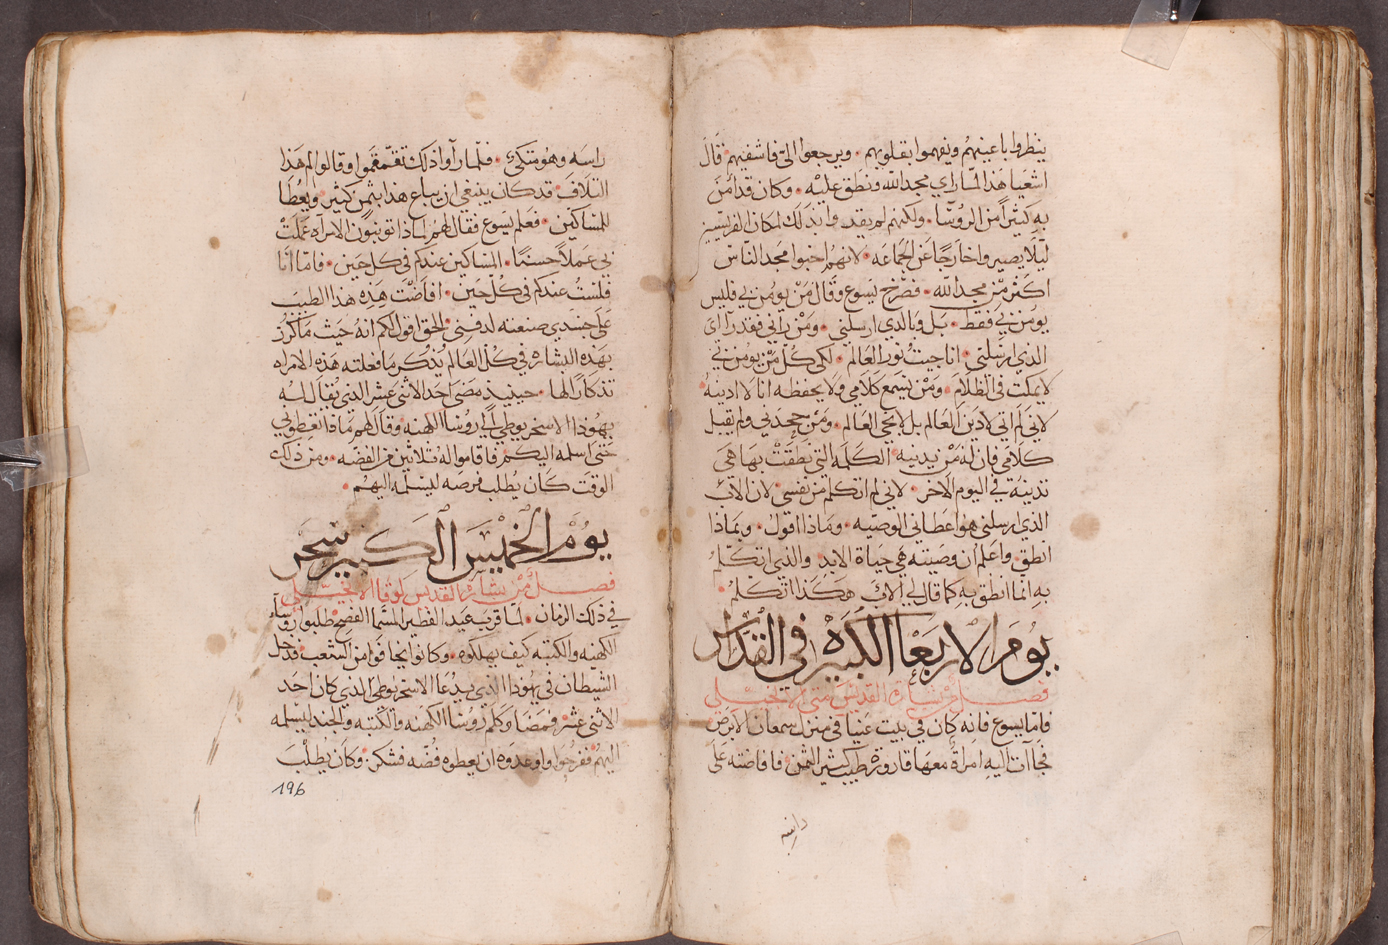 ينظروا باعينهم ويفهموا بقلوبهم • ويرجعوا الىّ فاشفيهم • قال
اشعيا هذا لمّا راي مجد الله ونطق عليه • وكان قد امن
به كثيراً من الروسا • ولكنهم لم يقدروا بذلك لمكان الفريسيين
ليلا يصيروا خارجًا عن الجماعه • لانهم احبوا مجد الناس
اكثر من مجد الله • فصرخ يسوع وقال من يومن بي فليس
يومن بي فقط • بل وبالذي ارسلني • ومن راني فقد راى
الذي ارسلني • انا جيت نور العالم • لكي كل من يومن بي
لا يمكث في الظلام • ومن يسمع كلامي ولا يحفظه انا لا ادينه
لاني لم اتي لادين العالم بل لاحيي العالم • ومن جحدني ولم يقبل
كلامي فان له من يدينه • الكلمه التي نطقت بها هي
تدينه في اليوم الاخر • لاني لم اتكلم من نفسي • لان الاب
الذي ارسلني هو اعطاني الوصيه • وماذا اقول • وبماذا
انطق • واعلم ان وصيته هي حياة الابد • والذي اتكلم
به انما انطق به كما قال لي الاب هكذا اتكلم •
يوم الاربعا الكبيره في القداس
فصل من بشارة القديس متى الانجيلي
فاما يسوع فانه كان في بيت عنيا في منزل سمعان الابرص
فجاآت اليه امراة معها قارورة طيب كثير الثمن • فافاضته على
راسه
راسه وهو متكي • فلما راوا ذلك تقمقموا وقالوا لم هذا
التلاف • قد كان ينبغي ان يباع هذا بثمن كثير • ويعطا
للمساكين • فعلم يسوع فقال لهم لماذا تونبون الامراه عملت
بي عملاً حسنًا • المساكين عندكم في كل حين • فاما انا
فلست عندكم في كل حين • افاضت هذه هذا الطيب
على جسدي صنعته لدفني • الحق اقول لكم انه حيث ما كرز
بهذه البشاره في كل العالم يُذكر ما فعلته هذه الامراه
تذكارًا لها • حينيذٍ مضى احد الاثنى عشر الذي يقال له
يهوذا الاسخريوطي الى روسا الكهنه وقال لهم ماذا تعطوني
حتى اسلمه اليكم • فاقاموا له ثلاثين من الفضه • ومن ذلك
الوقت كان يطلب فرصه ليسلمه اليهم •
يوم الخميس الكبير سحر
فصل من بشارة القديس لوقا الانجيلي
في ذلك الزمان • لما قرب عيد الفطير المسما الفصح • طلبوا روساء
الكهنه والكتبه كيف يهلكوه • وكانوا يخافوا من الشعب • فدخل
الشيطان في يهودا الذي يدعا الاسخريوطي الذي كان احد
الاثنى عشر • فمضا وكلم روسا الكهنه والكتبه والجند ليسلمه
اليهم • ففرحوا واوعدوه ان يعطوه فضه فشكر • وكان يطلب
196